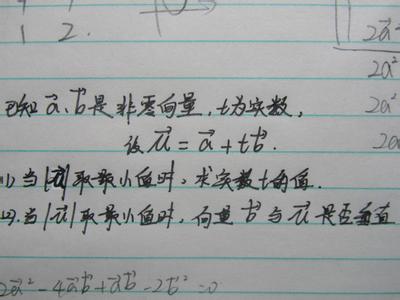 1 2.
2a⃗²
2a²
2a²
2a
已知 a⃗、b⃗ 是非零向量，t为实数，
设 u⃗ = a⃗ + tb⃗.
(1) 当|u⃗|取最小值时，求实数t的值.
(2). 当|u⃗|取最小值时，向量 b⃗ 与 u⃗ 是否垂直
2a⃗² - 4a⃗b⃗ + a⃗b⃗ - 2b⃗² = 0